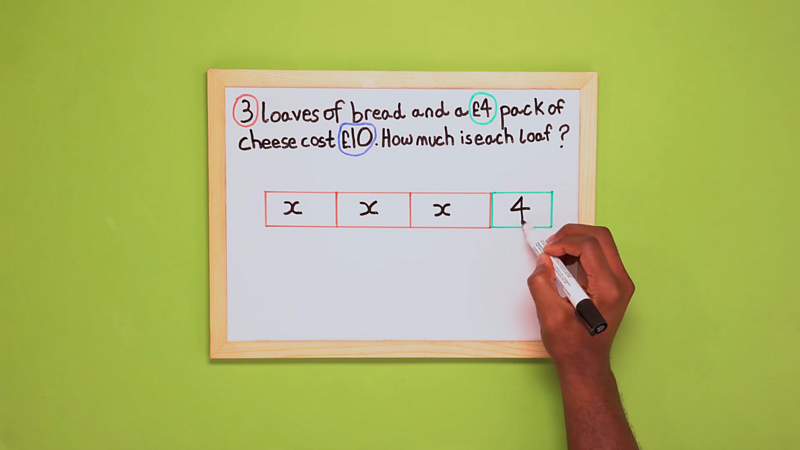 3 loaves of bread and a £4 pack of
cheese cost £10. How much is each loaf?
x x x 4